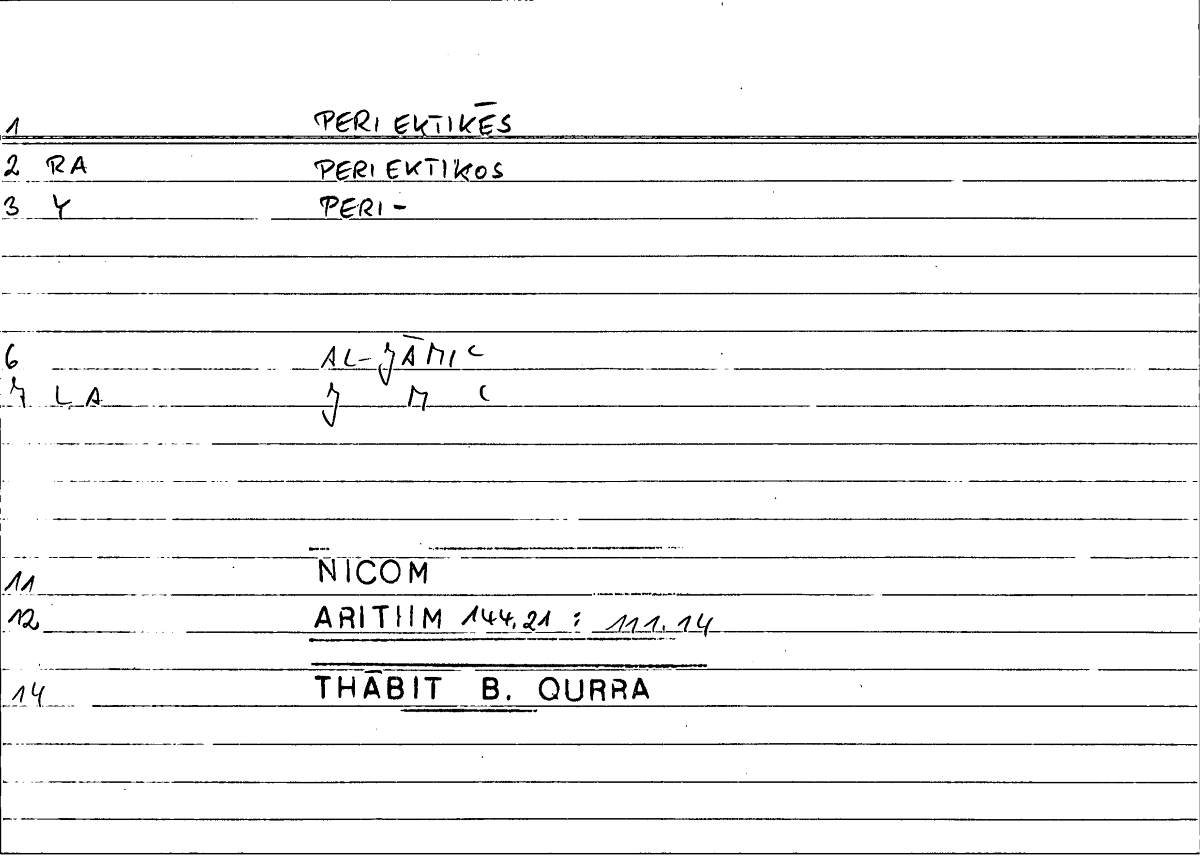 1 PERIEKTIKĒS
2 RA PERIEKTIKOS
3 Y PERI-
6 AL-JĀMIC
7 LA J M C
11 NICOM
12 ARITHM 144.21 : 111.14
14 THĀBIT B. QURRA